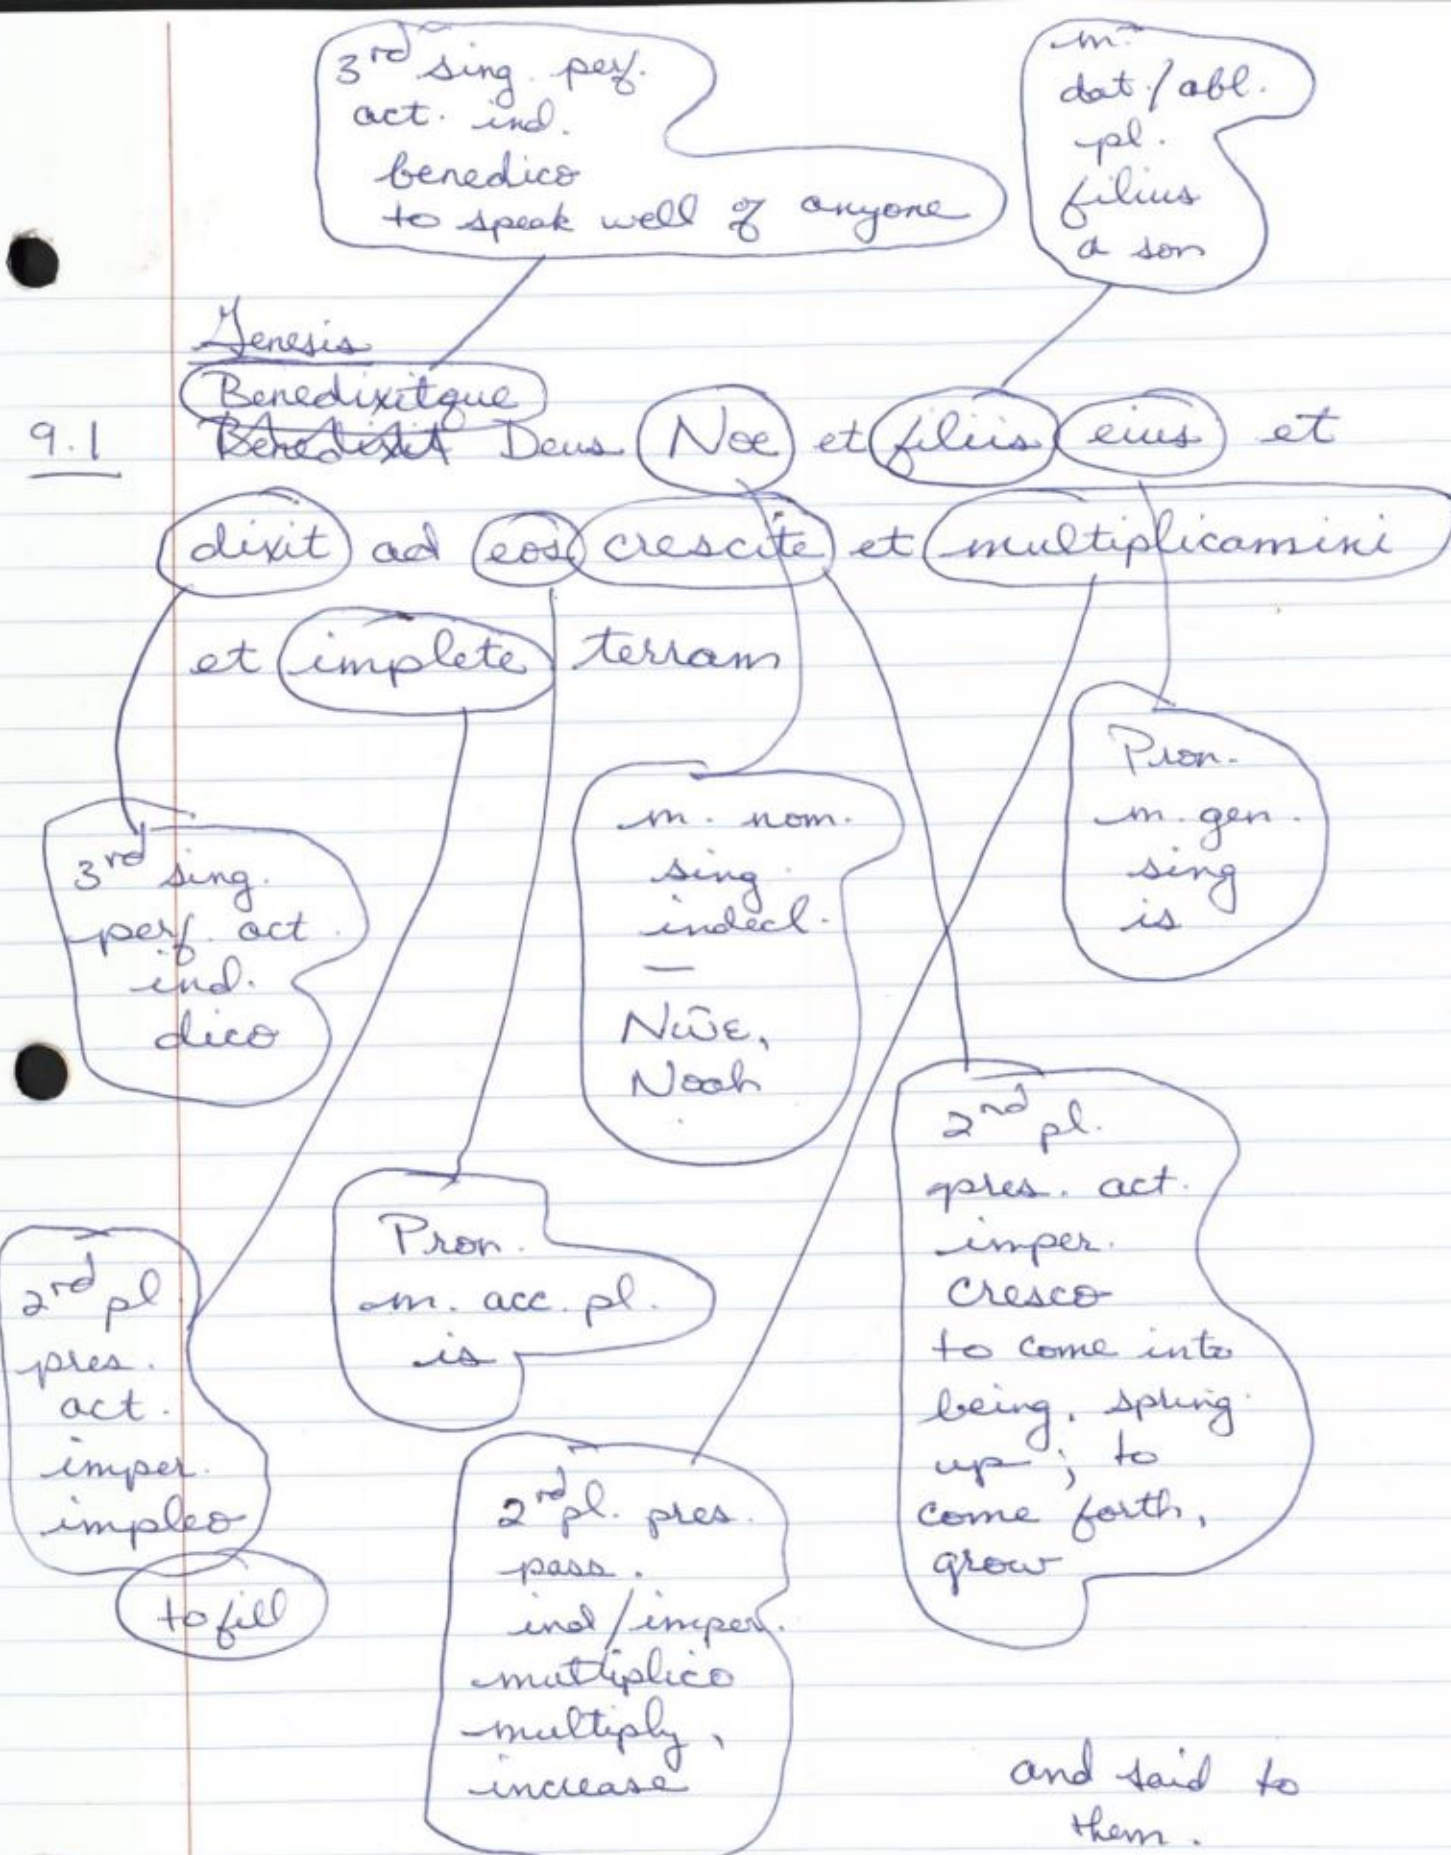 3rd sing. perf.
act. ind.
benedico
to speak well of anyone
m.
dat./abl.
pl.
filius
a son
Genesis
Benedixitque
9.1 Benedixit Deus Noe et filiis eius et
dixit ad eos crescite et multiplicamini
et implete terram
3rd sing.
perf. act.
ind.
dico
m. nom.
sing.
indecl.
—
Νῶε,
Noah
Pron.
m. gen.
sing
is
2nd pl.
pres. act.
imper.
cresco
to come into
being, spring
up; to
come forth,
grow
Pron.
m. acc. pl.
is
2rd pl
pres.
act.
imper.
impleo
to fill
2rd pl. pres.
pass.
ind/imper.
multiplico
multiply,
increase
and said to
them.